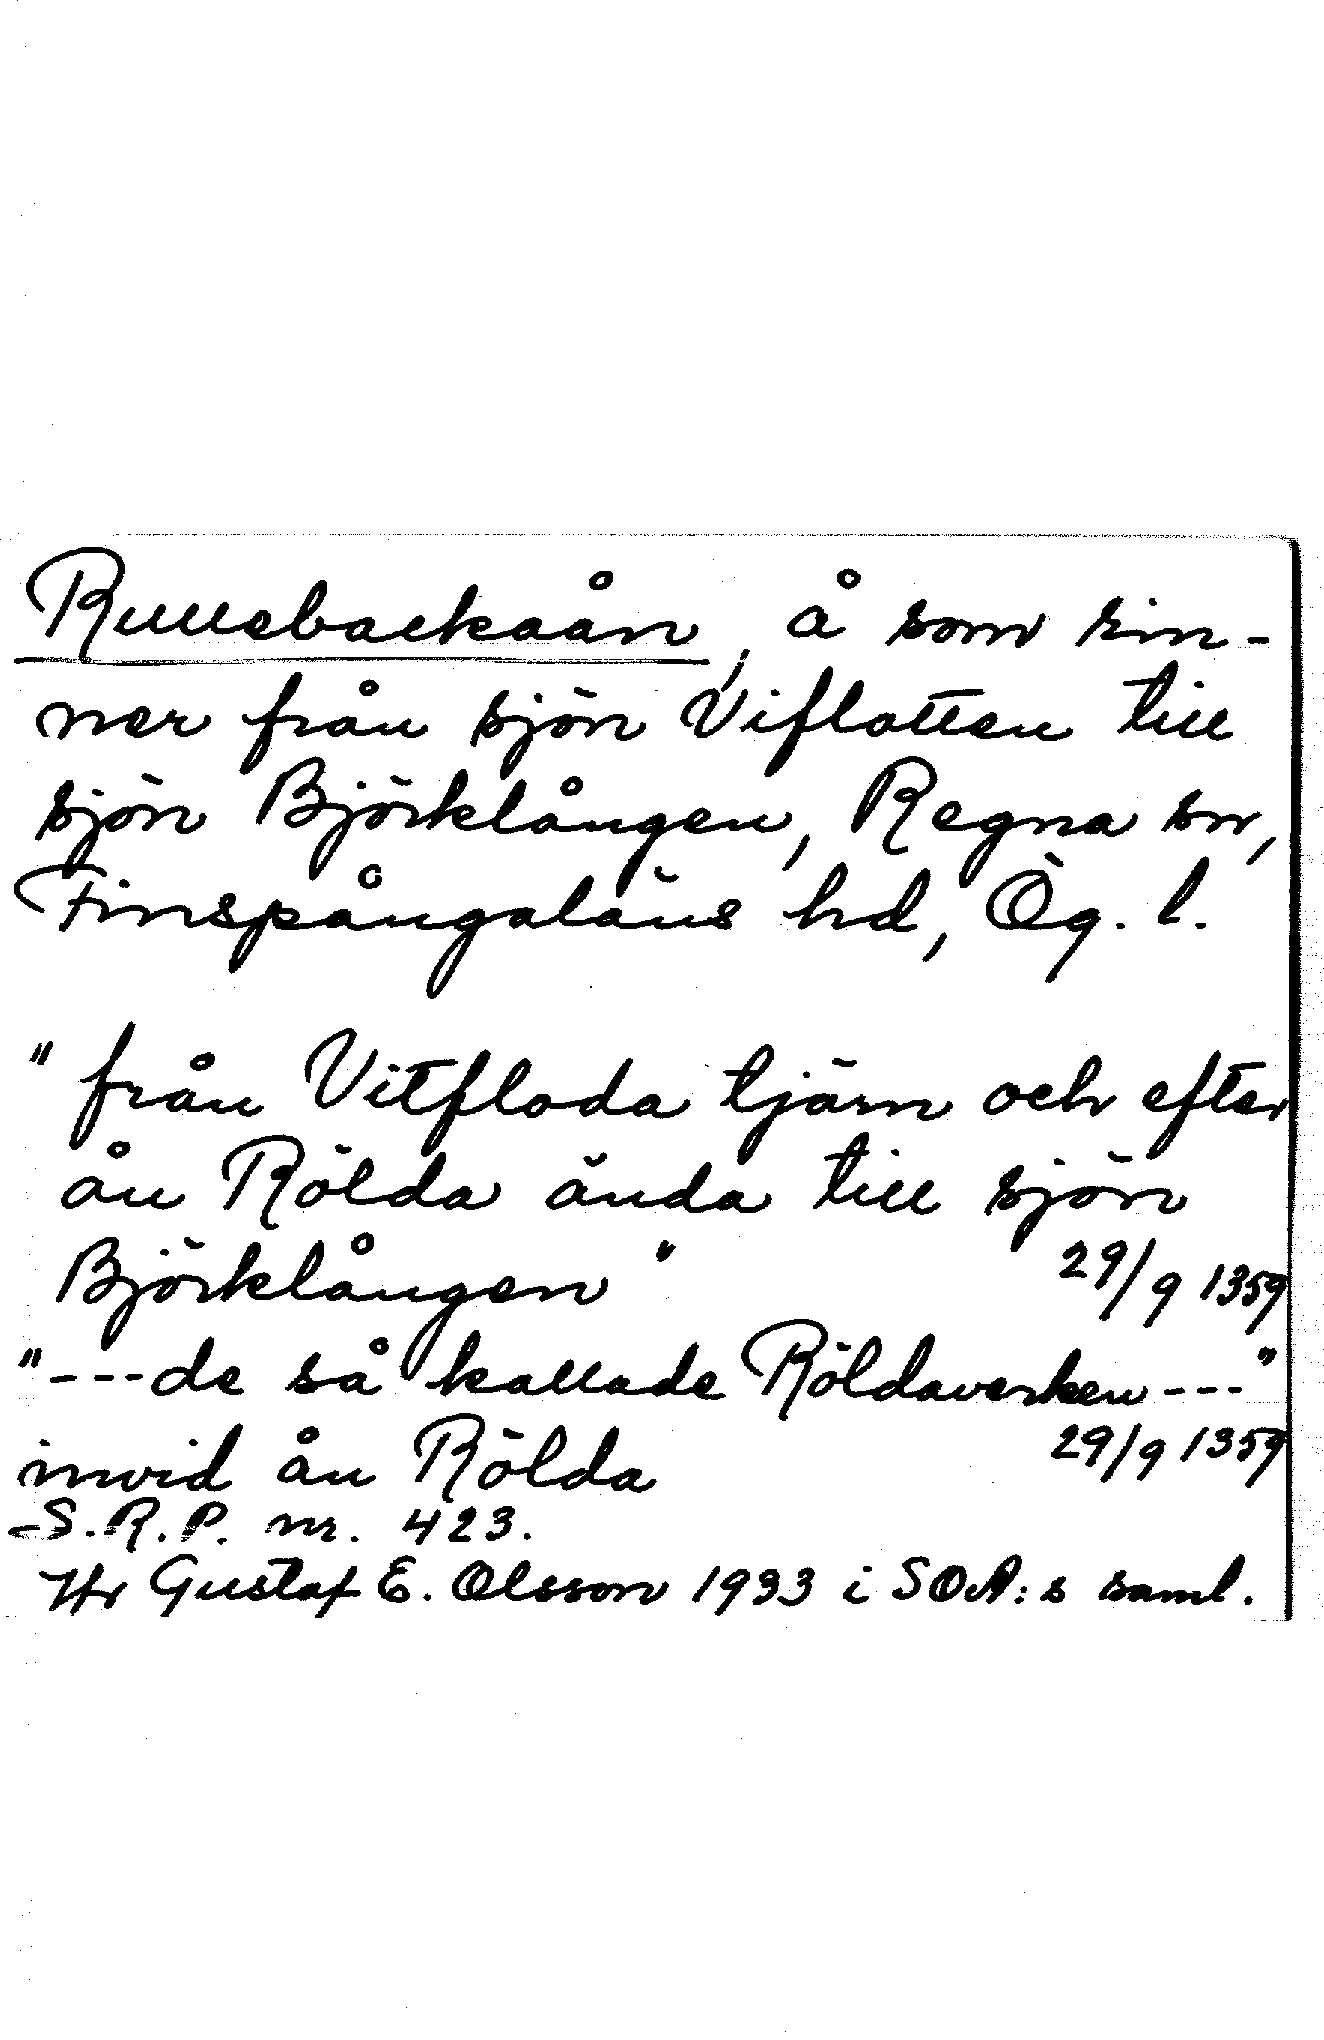 Rullebackaån, å som rin-
ner från sjön Viflotten till
sjön Björklången, Regna sn,
Finspångaläns hd, Ög. l.
"från Vitfloda tjärn och efter
ån Rölda ända till sjön
Björklången" 29/9 1359
"---de så kallade Röldaverken---"
invid ån Rölda 29/9 1359
S.R.P. nr. 423.
Hr Gustaf E. Olsson 1933 i SOA:s saml.